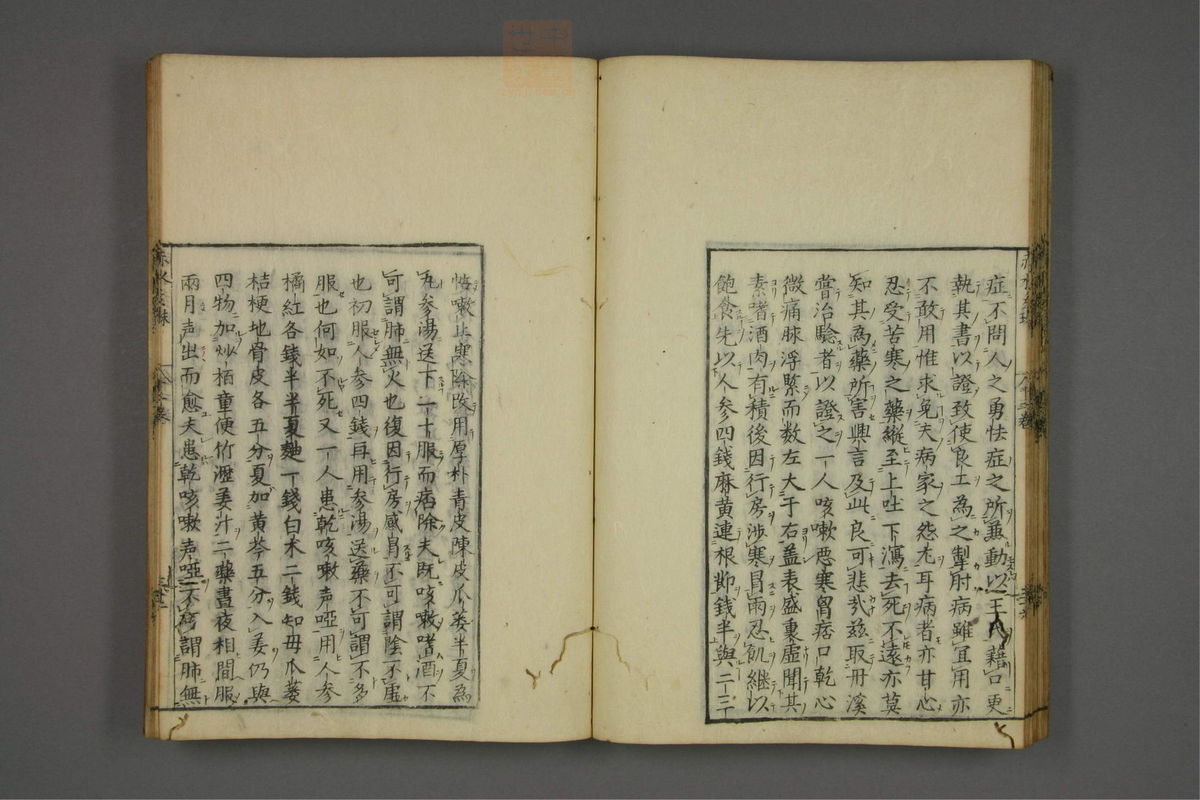 症不問人之勇怯症之所兼動以王藉口更
執其書以證致使良工為之掣肘病雖宜用亦
不敢用惟求免夫病家之怨尤耳病者亦甘心
忍受苦寒之藥縱至上吐下瀉去死不遠亦莫
知其為藥所害興言及此良可悲哉茲取丹溪
嘗治驗者以證之一人咳嗽惡寒胷痞口乾心
微痛脉浮緊而数左大于右蓋表盛裏虛聞其
素嗜酒肉有積後因行房涉寒冒雨忍飢繼以
飽食先以人参四錢麻黄連根節錢半與二三
悟嗽止寒除改用厚朴青皮陳皮瓜蔞半夏為
丸参湯送下二十服而痞除夫既咳嗽嗜酒不
可謂肺無火也復因行房感冒不可謂陰不虛
也初服人参四錢再用参湯送藥不可謂不多
服也何如不死又一人患乾咳嗽声啞用人参
橘紅各錢半半夏麯一錢白术二錢知母瓜蔞
桔梗地骨皮各五分夏加黄芩五分入姜仍與
四物加炒栢童便竹瀝姜汁二藥晝夜相間服
兩月声出而愈夫患乾咳嗽声啞不可謂肺無